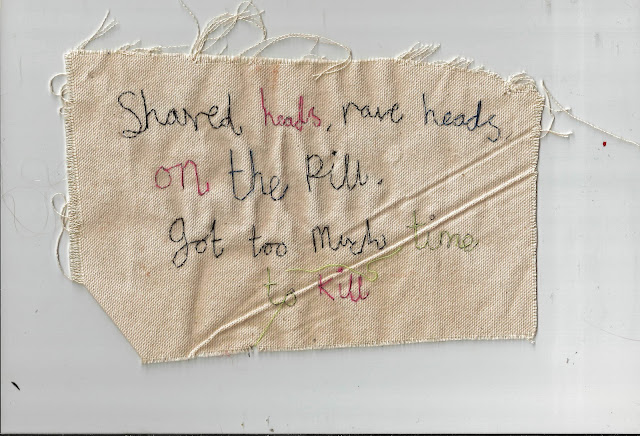 Shaved heads, rave heads,
on the Pill.
got too Much time
to Kill